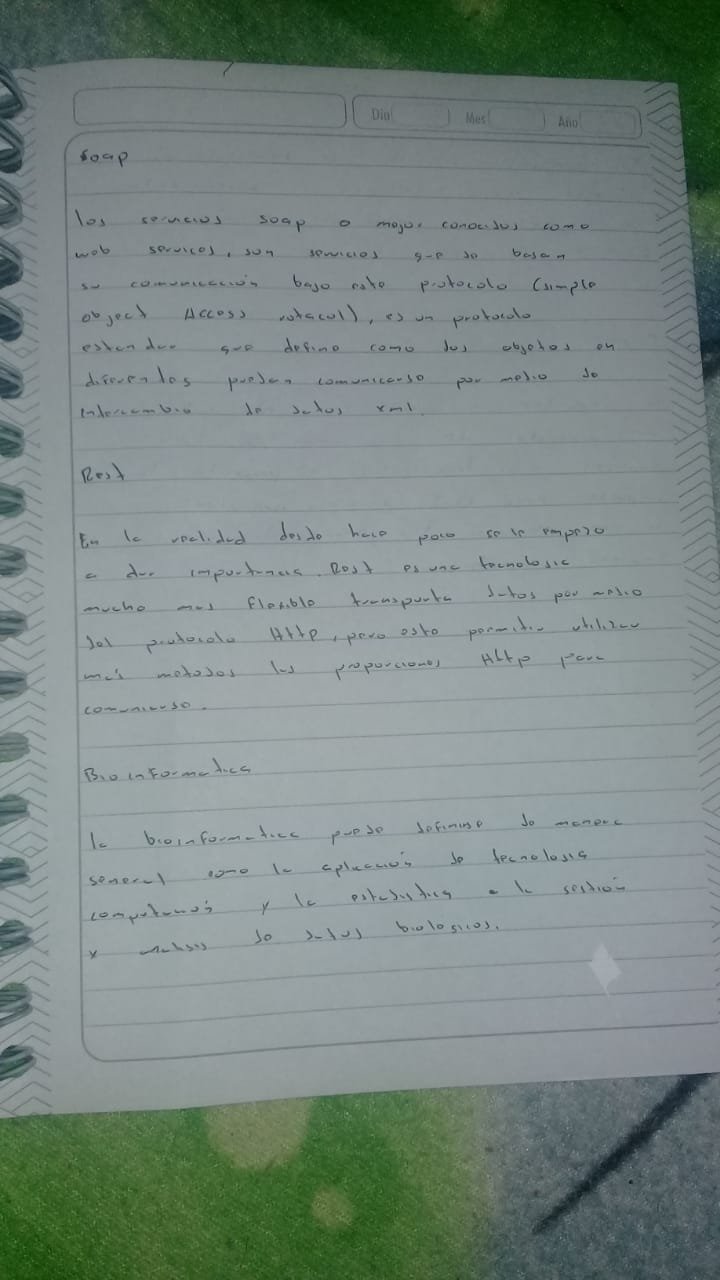 Dia Mes Año
Soap
los servicios soap o mejor conocidos como
web services, son servicios que se basan
su comunicación bajo este protocolo (simple
object Access rotocol), es un protocolo
estandar que define como dos objetos en
diferentes pueden comunicarse por medio de
intercambio de datos xml.
Rest
En la realidad desde hace poco se le empezo
a dar importancia. Rest es una tecnologia
mucho mas flexible transporta datos por medio
del protocolo Http, pero esto permitir utilizar
más metodos los proporciones Http para
comunicarse.
Bioinformatica
la bioinformatica puede definirse de manera
general como la aplicación de tecnologia
y la estadistica a la gestión
y analisis de datos biologicos.